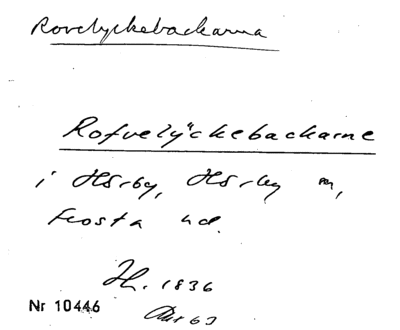 Rovelyckebackarna
Rofvelÿckebackarne
i Hörby, Hörby sn,
Frosta hd.
H. 1836
Nr 10446
63